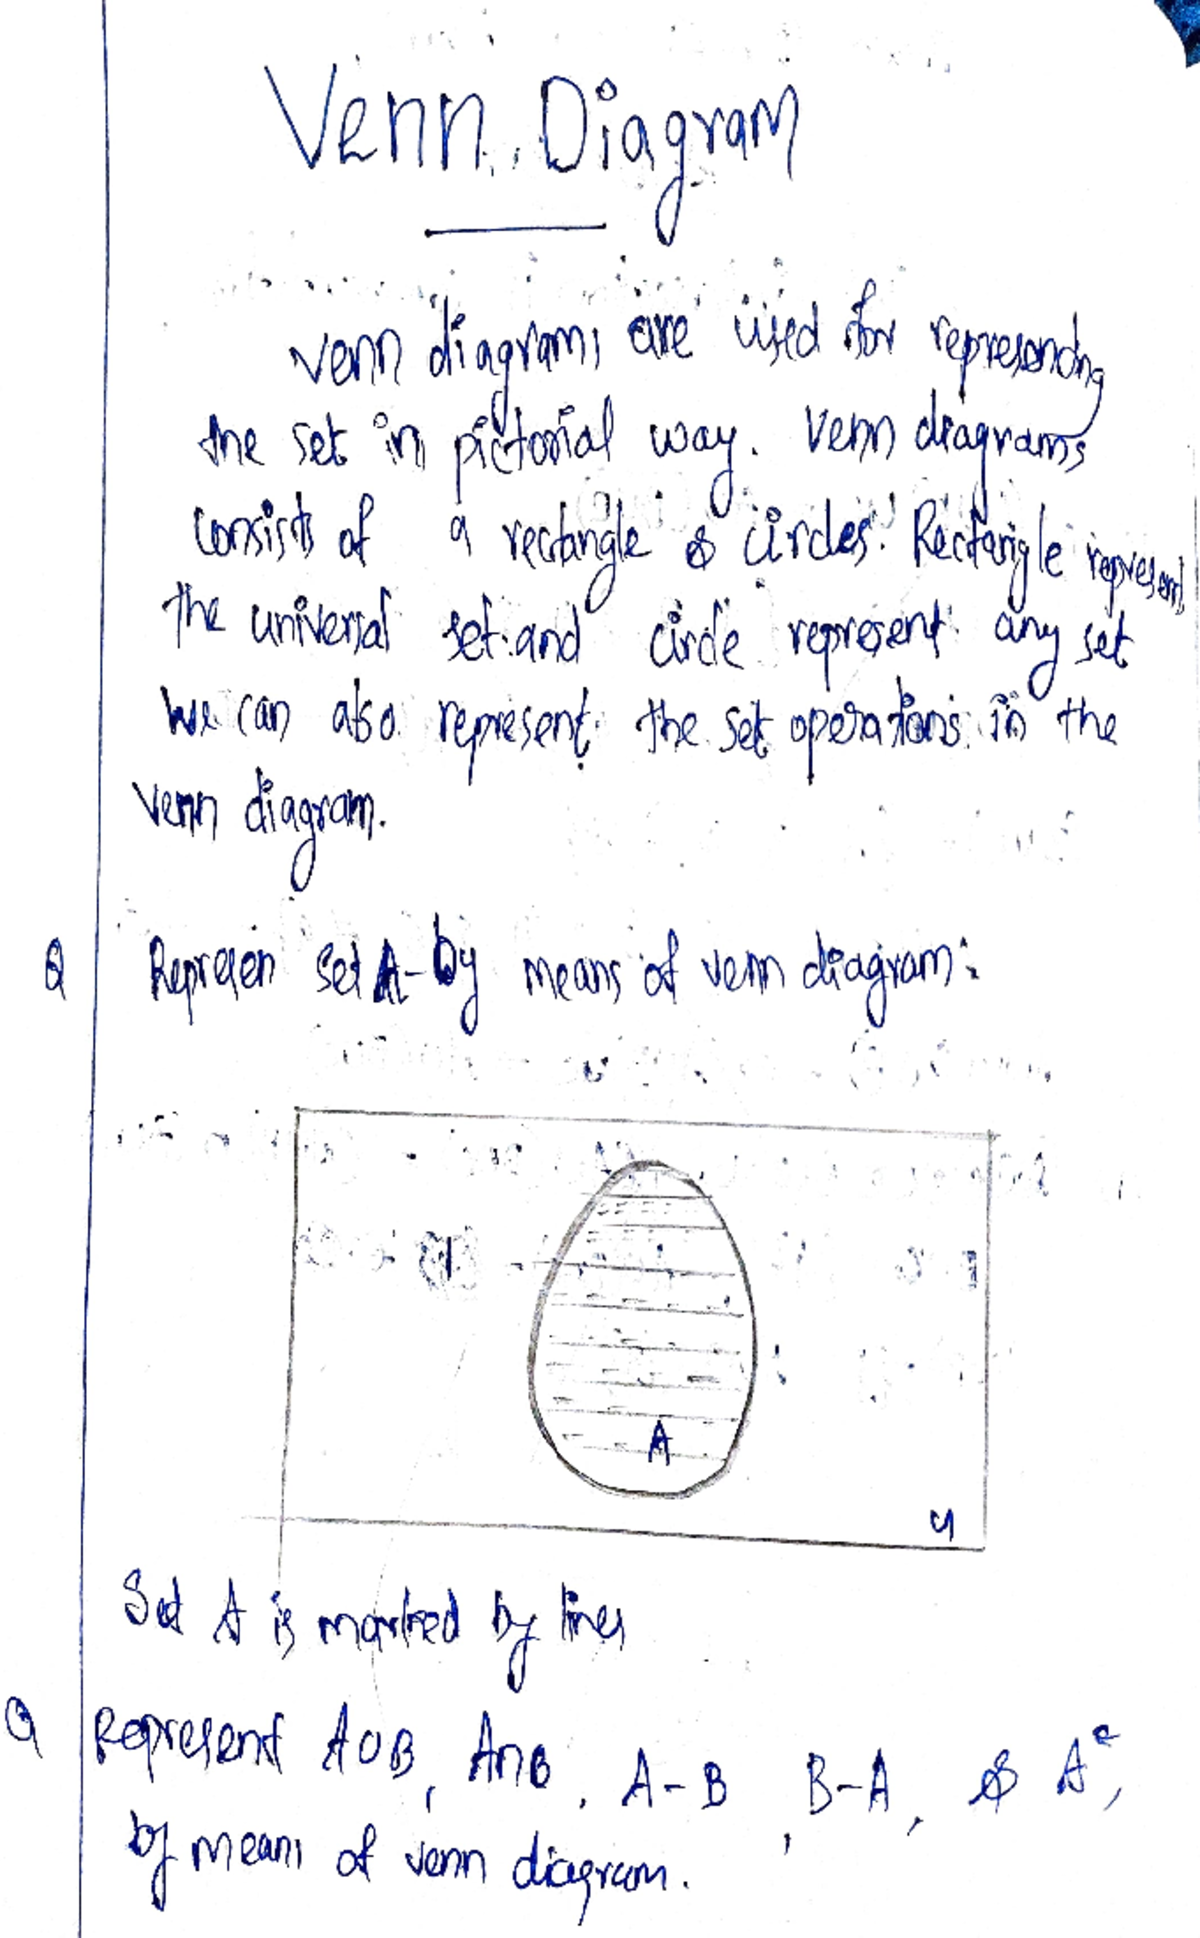 Venn Diagram
Venn diagrams are used for representing
the set in pictorial way. Venn diagrams
consists of a rectangle & circles. Rectangle represent
the universal set and circle represent any set
We can also represent the set operations in the
Venn diagram.
Q Represen set A by means of venn diagram:
A
U
Set A is marked by lines
Q Represent A∪B, A∩B, A-B, B-A, & Aᶜ,
by means of venn diagram.